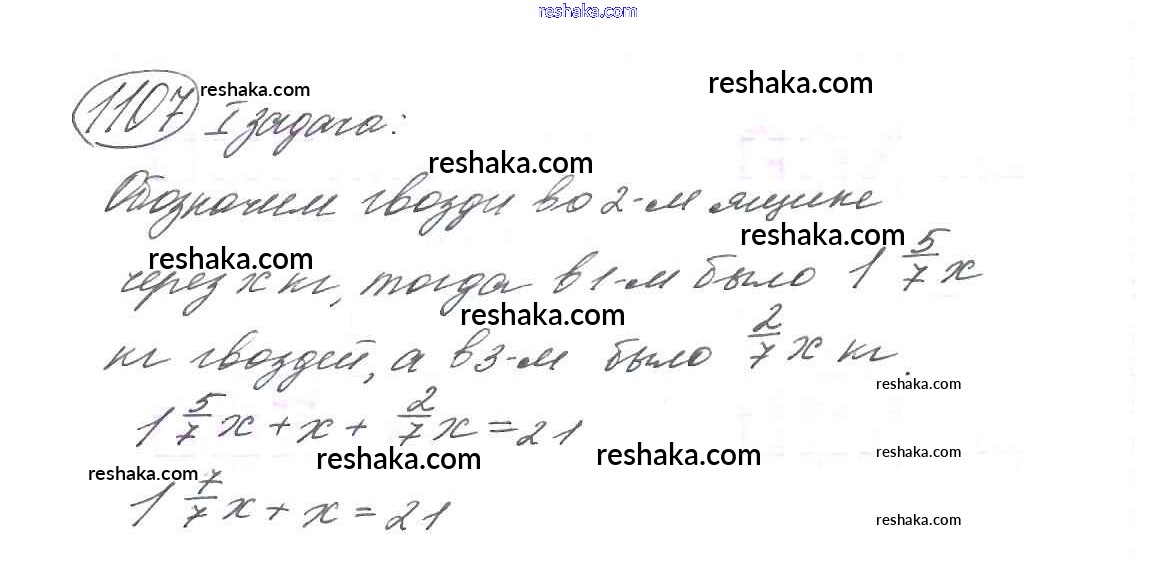 reshaka.com
1107 reshaka.com reshaka.com
I задача:
reshaka.com
Обозначим гвозди во 2-м ящике
reshaka.com reshaka.com
через x кг, тогда в 1-м было 1 5/7 x
reshaka.com
кг гвоздей, а в 3-м было 2/7 x кг.
reshaka.com
1 5/7 x + x + 2/7 x = 21
reshaka.com reshaka.com reshaka.com reshaka.com
1 7/7 x + x = 21
reshaka.com